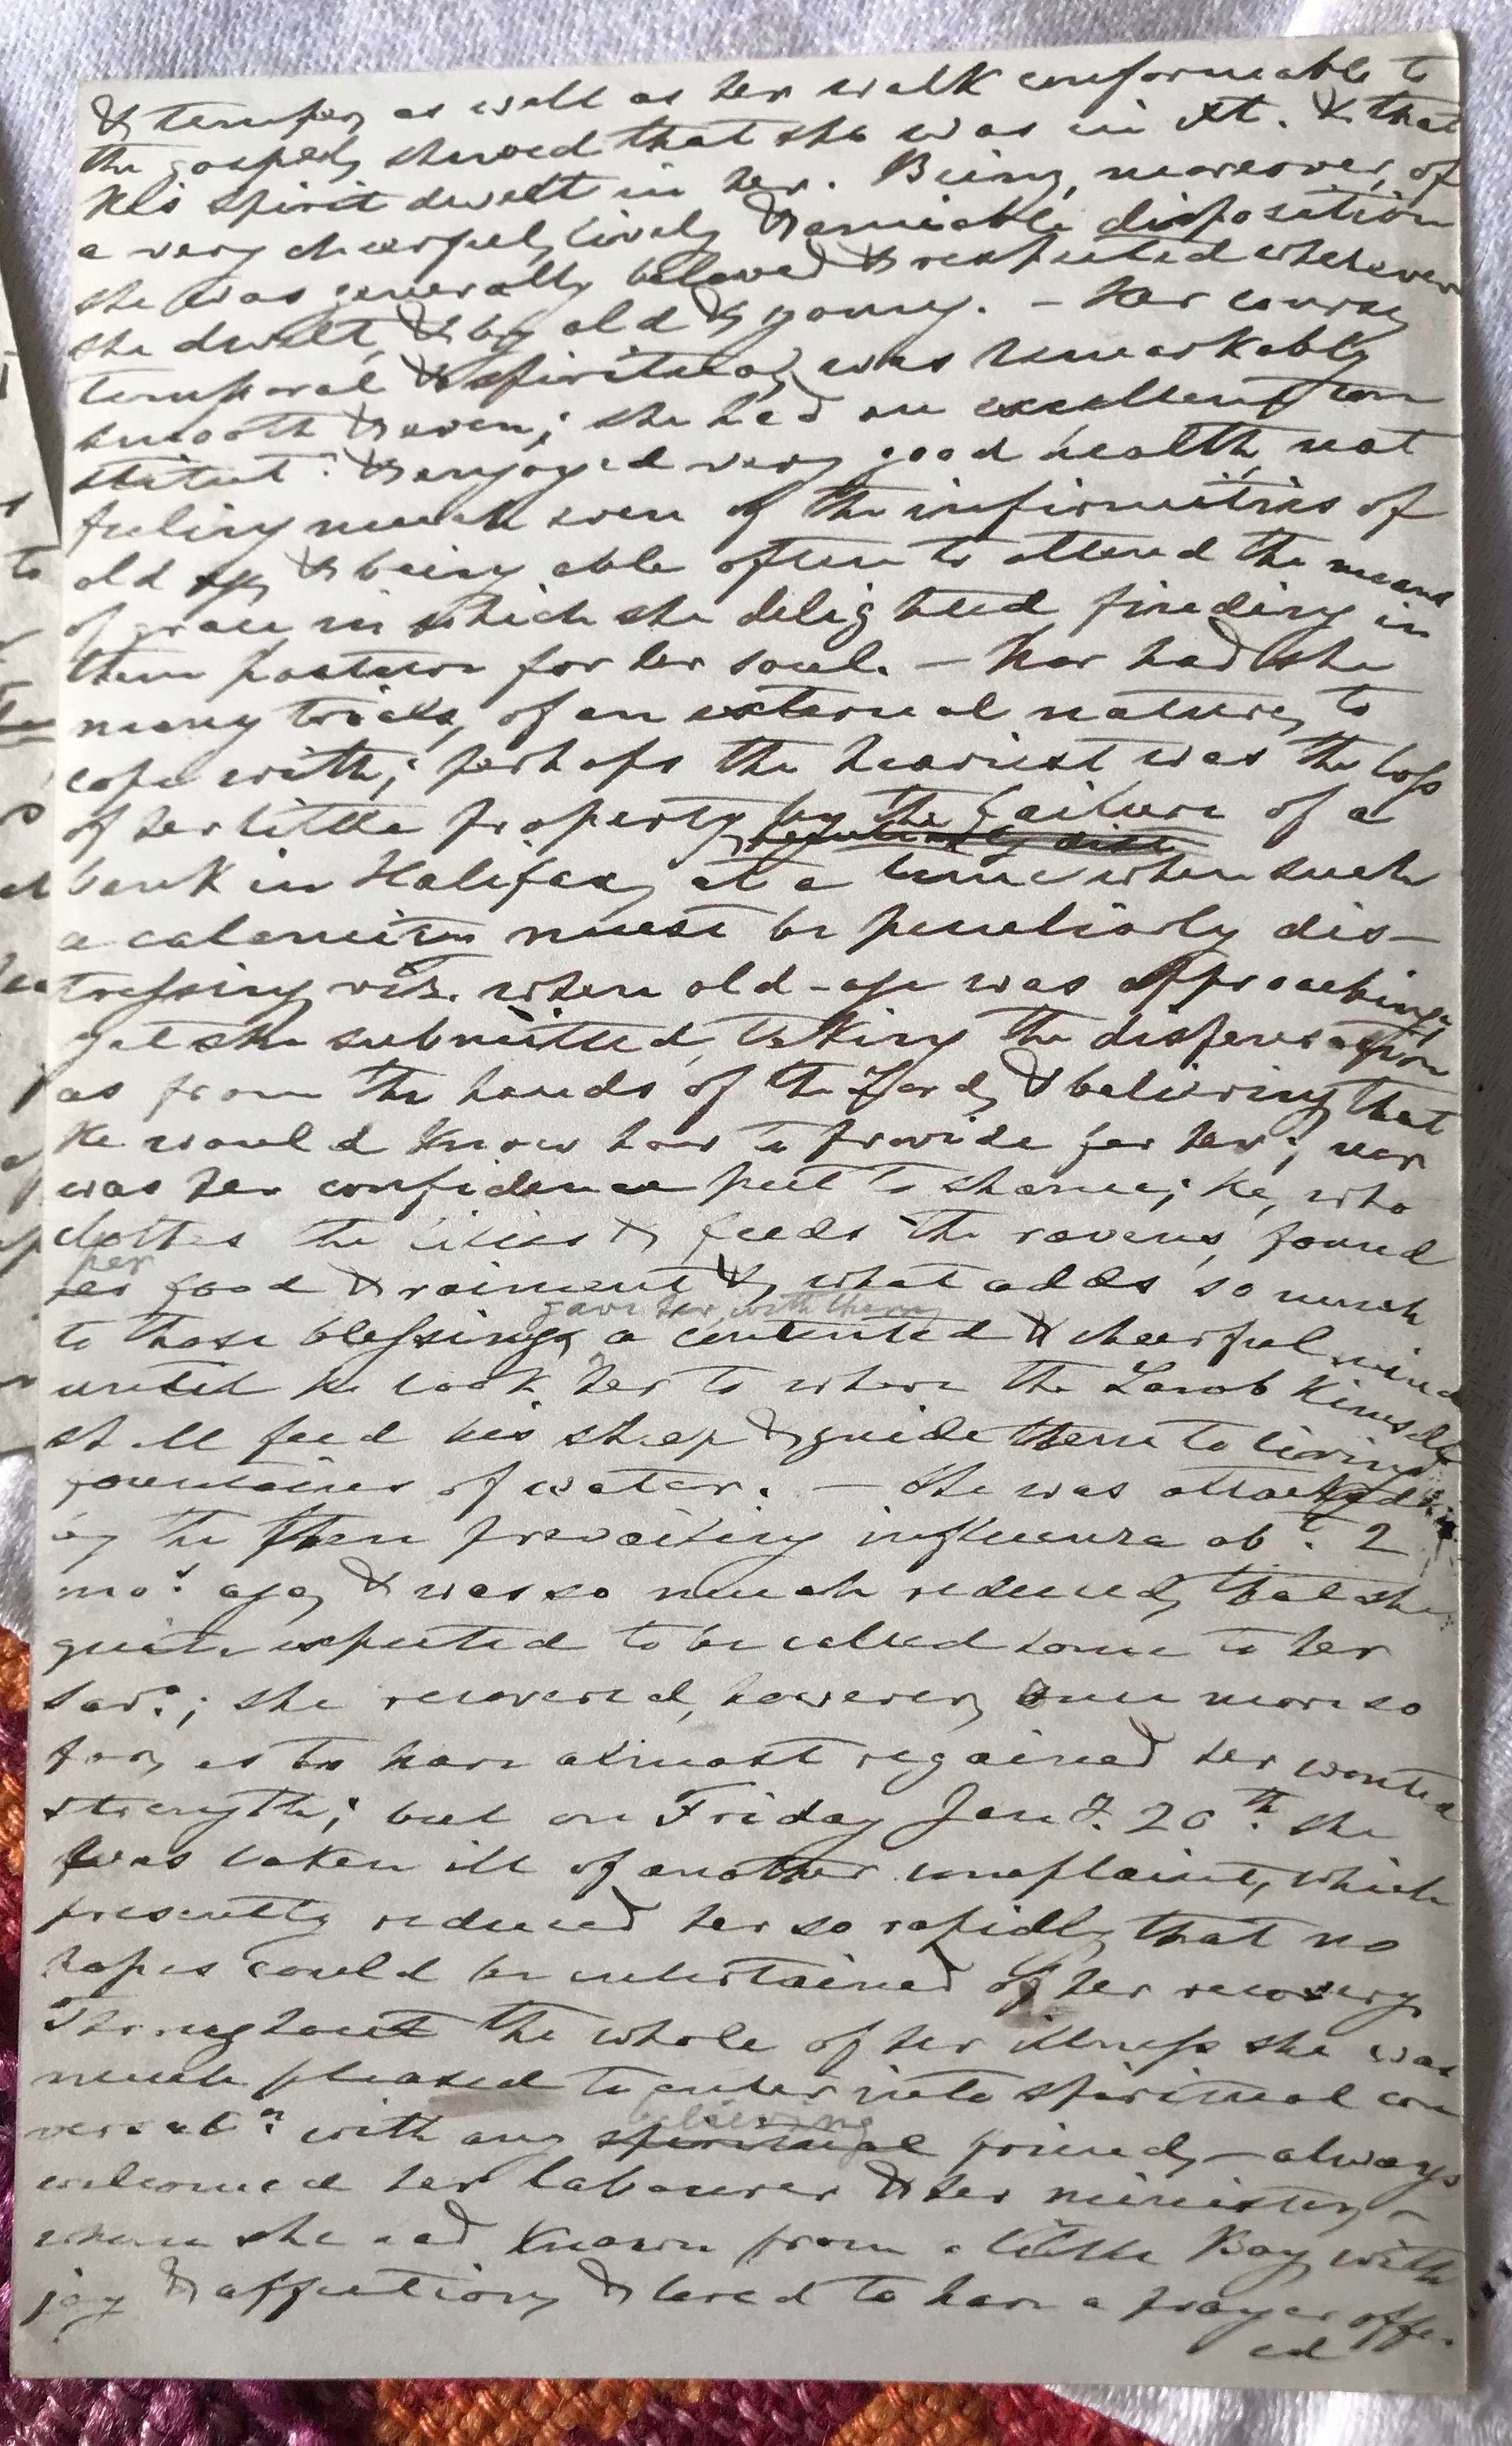 & temper, as well as her walk conformable to
the gospel, shewed that she was in Xt. & that
His spirit dwelt in her. Being, moreover, of
a very cheerful, lively & amiable disposition
she was generally beloved & respected wherever
she dwelt, & by old & young. – Her course,
temporal & spiritual, was remarkably
smooth & even; she had an excellent con
stitutn. & enjoyed very good health, not
feeling much even of the infirmities of
old age, & being able often to attend the means
of grace in which she delighted finding in
them pasture for her soul. – Nor had she
many trials, of an external nature, to
cope with; perhaps the heaviest was the loss
of her little property by the failure of a
bank in Halifax, at a time when such
a calamity must be peculiarly dis–
tressing, viz. when old-age was approaching,
yet she submitted, taking the dispensation
as from the hands of the Lord, & believing that
He would know how to provide for her; nor
was her confidence put to shame; He, who
clothes the lilies & feeds the ravens, found
her
her food & raiment &, what adds so much
gave her with them
to those blessings, a contented & cheerful mind
until he took her to where the Lamb Himself
shall feed his sheep & guide them to living
fountains of water. – She was attacked
by the then prevailing influenza abt. 2
mos. ago, & was so much reduced, that she
quite expected to be called home to her
Savr.; she recovered, however, once more so
far, as to have almost regained her wonted
strength; but on Friday Jany. 20th. she
was taken ill of another complaint, which
presently reduced her so rapidly, that no
hopes could be entertained of her recovery.
Throughout the whole of her illness she was
much pleased to enter into spiritual con
believing
versatn. with any spiritual friend, – always
welcomed her labourer & her minister, –
whom she had known from a little Boy, with
joy & affection, & loved to have a prayer offer-
ed